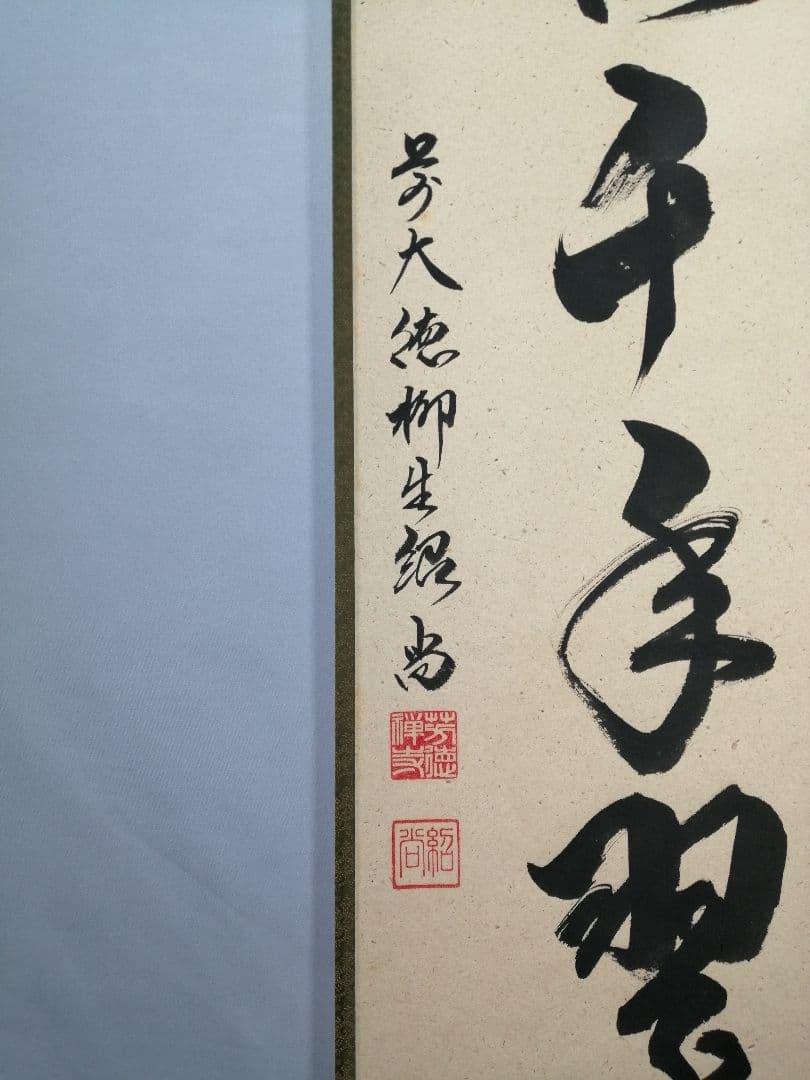 千年翠
前大徳柳生紹尚
芳徳禅寺
紹尚